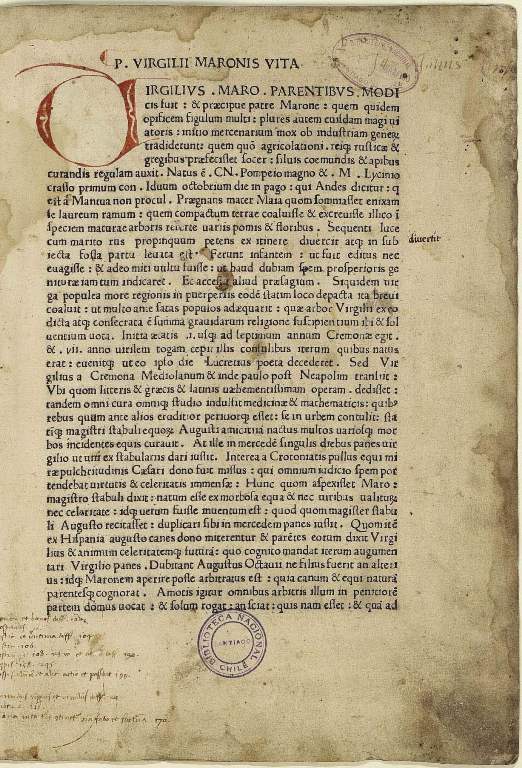 P. VIRGILII MARONIS VITA
IRGILIVS . MARO . PARENTIBVS . MODI
cis fuit : & præcipue patre Marone : quem quidem
opificem figulum multi : plures autem cuiusdam magi ui
atoris : initio mercenarium mox ob industriam generę
tradiderunt: quem quō agricolationi . reiq; rusticæ &
gregibus præfecisset socer : siluis coemundis & apibus
curandis regulam auxit. Natus ē . CN. Pompeio magno & . M . Lycinio
crasso primum con . Iduum octobrium die in pago : qui Andes dicitur : q
est a Mantua non procul . Prægnans mater Maia quom somniasset enixam
se laureum ramum : quem compactum terræ coaluisse & excreuisse illico ī
speciem maturæ arboris refertæ uariis pomis & floribus . Sequenti luce
cum marito rus propinquum petens ex itinere diuertit atq; in sub
diuertit
iecta fossa partu leuata est . Ferunt infantem : ut fuit editus nec
euagisse : & adeo miti uultu fuisse : ut haud dubiam spem prosperioris ge
nituræ iam tum indicaret. Et accessit aliud præsagium . Siquidem uir
ga populea more regionis in puerperiis eodē statim loco depacta ita breui
coaluit : ut multo ante satas populos adæquarit : quæ arbor Virgilii ex eo
dicta atq; consecrata ē summa grauidarum religione suscipientium ibi & sol
uentium uota . Initia ætatis .i. usq; ad septimum annum Cremonæ egit .
& . vii. anno uirilem togam cepit illis consulibus iterum quibus natus
erat : euenitq; ut eo ipso die Lucretius poeta decederet . Sed Vir
gilius a Cremona Mediolanum & inde paulo post Neapolim transiit :
Vbi quom litteris & græcis & latinis uæhementissimam operam . dedisset :
tandem omni cura omniq; studio indulsit medicinæ & mathematicis : quib⁹
rebus quum ante alios eruditior peritiorq; esset : se in urbem contulit: sta
tiq; magistri stabuli equoʀ Augusti amicitiā nactus multos uariosq; mor
bos incidentes equis curauit . At ille in mercedē singulis diebus panes uir
gilio ut uni ex stabulariis dari iussit. Interea a Crotoniatis pullus equi mi
ræ pulchritudinis Cæsari dono fuit missus : qui omnium iudicio spem por
tendebat uirtutis & celeritatis immensæ : Hunc quom aspexisset Maro :
magistro stabuli dixit : natum esse ex morbosa equa & nec uiribus ualiturū
nec celeritate : idq; uerum fuisse inuentum est : quod quom magister stabu
li Augusto recitasset : duplicari sibi in mercedem panes iussit. Quom itē
ex Hispania augusto canes dono mitterentur & parētes eorum dixit Virgi
lius & animum celeritatemq; futurā: quo cognito mandat iterum augumen
tari Virgilio panes . Dubitant Augustus Octauii ne filius fuerit an alteri
us : idq; Maronem aperire posse arbitratus est : quia canum & equi naturā
parentesq; cognorat . Amotis igitur omnibus arbitris illum in penitiorē
partem domus uocat : & solum rogat : an sciat : quis nam esset : & quā ad
BIBLIOTECA NACIONAL
SANTIAGO
CHILE